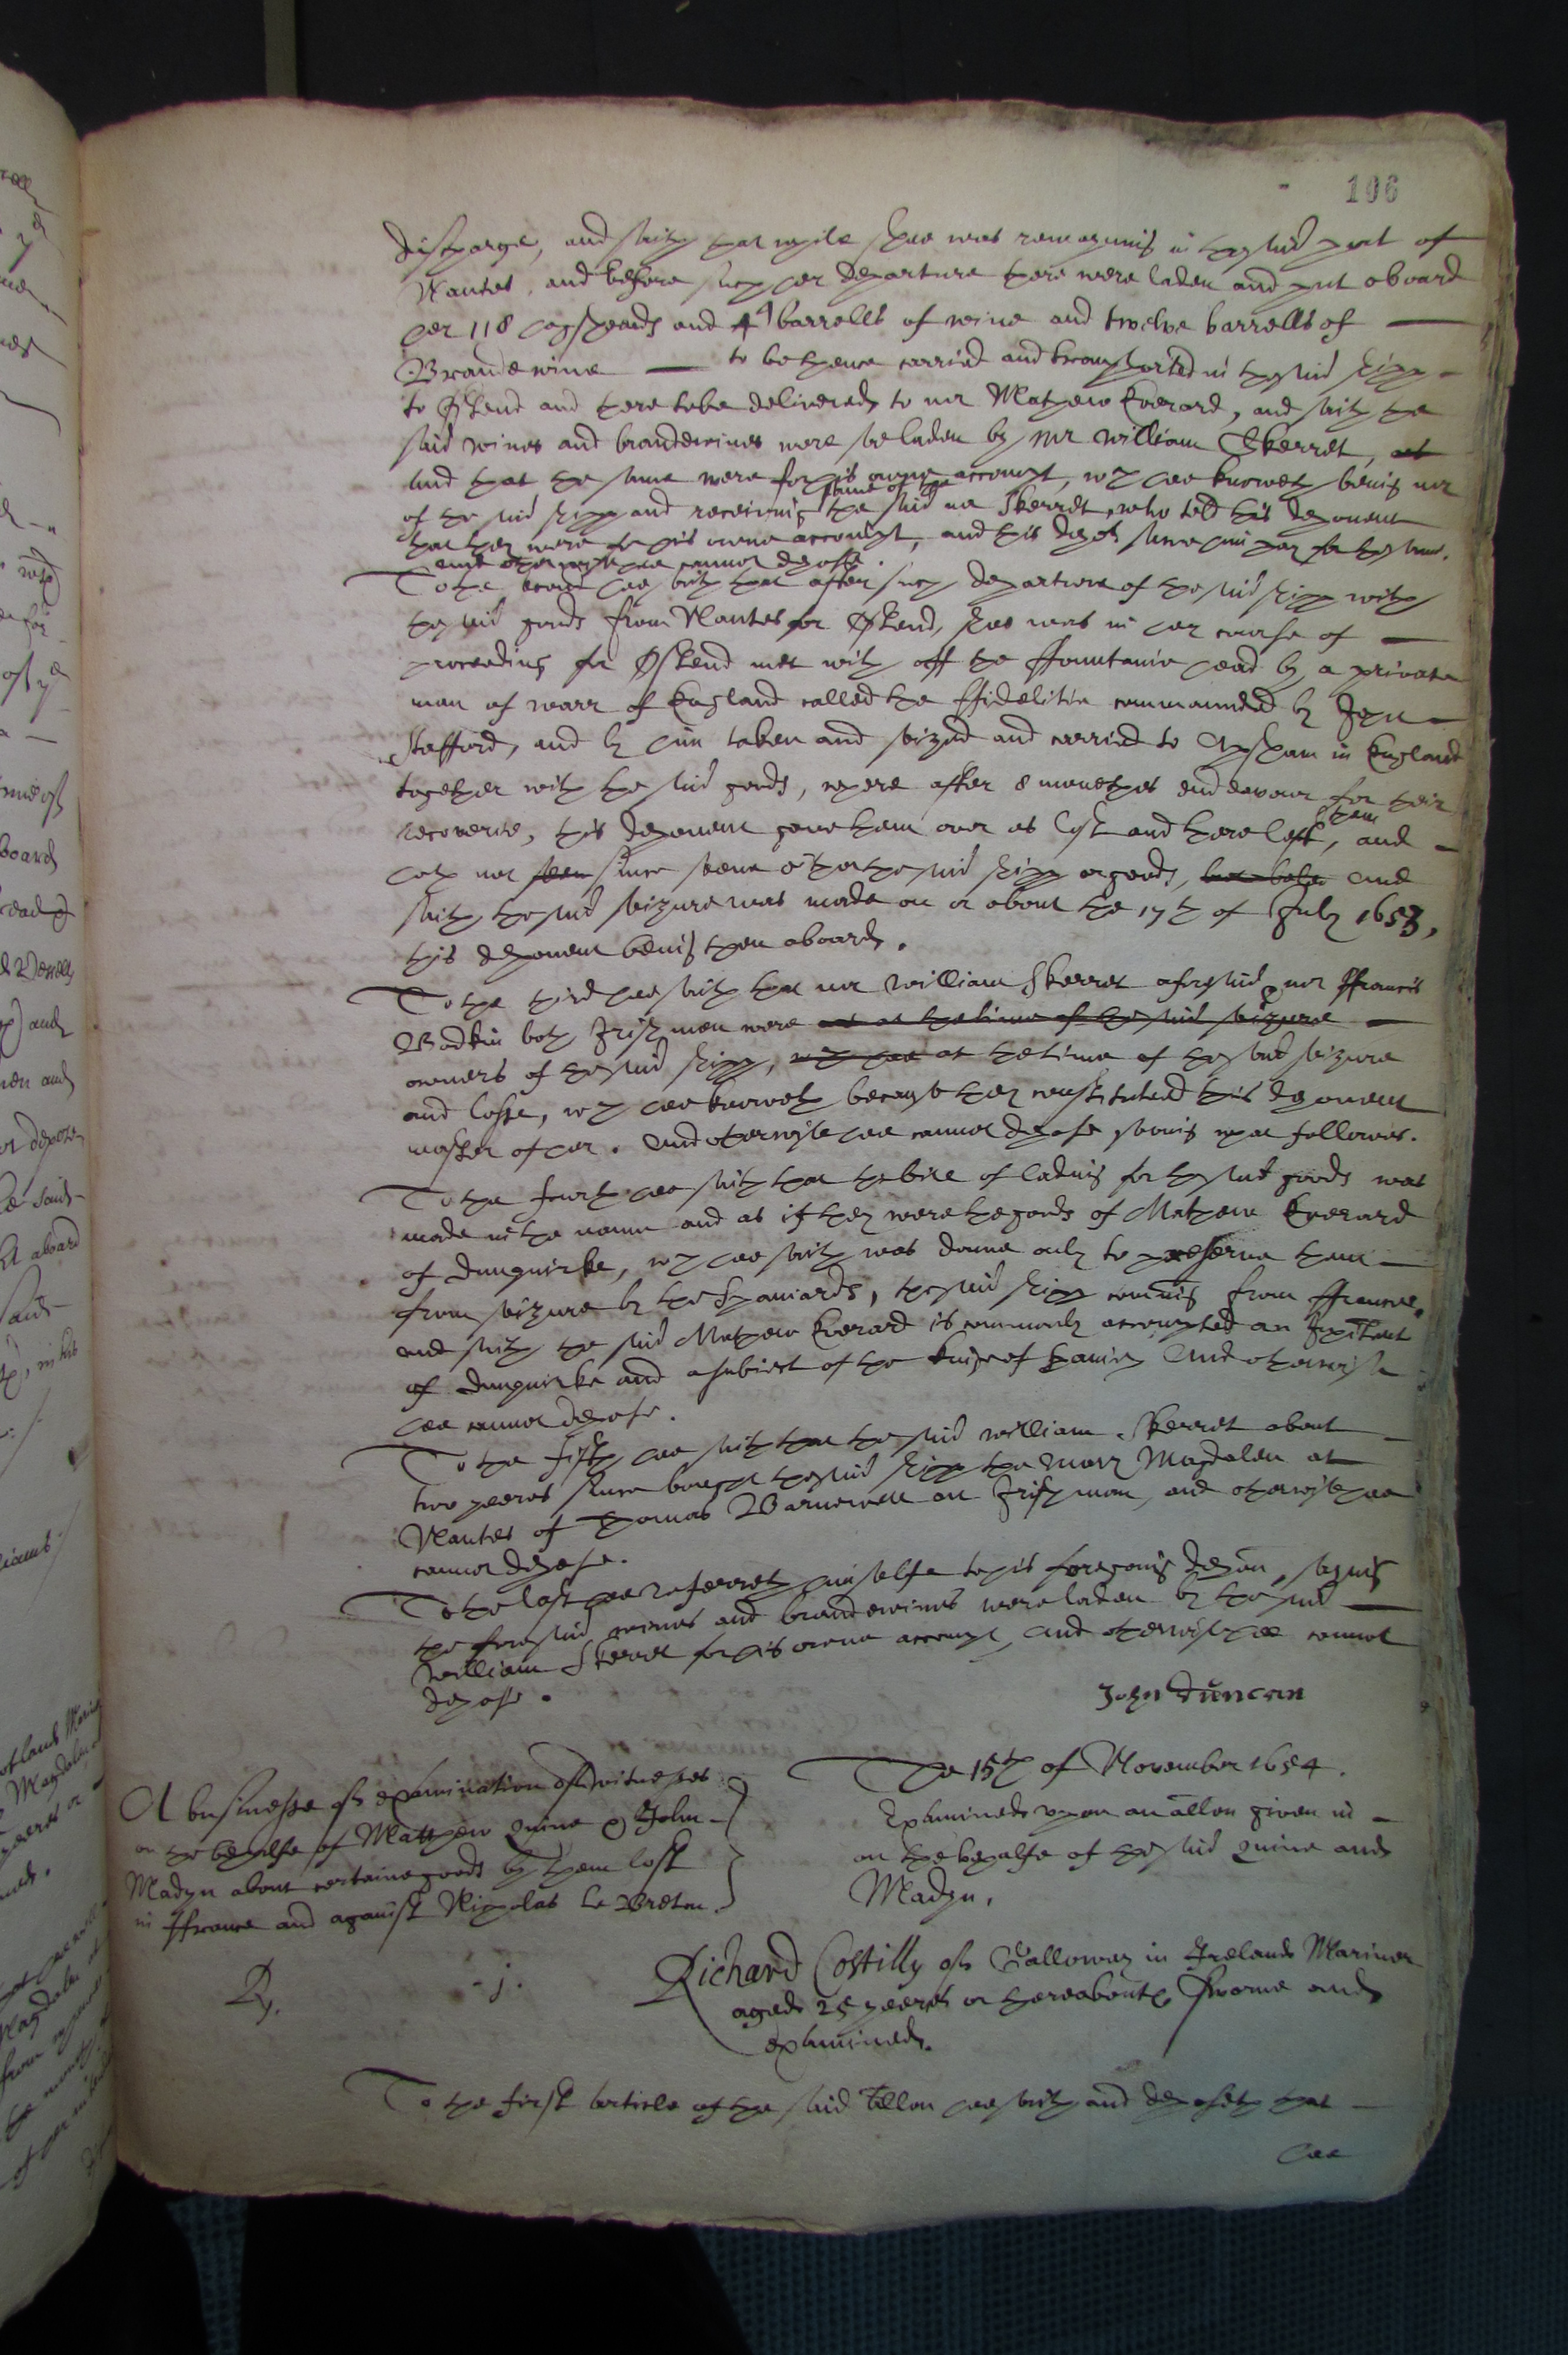 106
discharge, and saith that while shee was remayning in the said port of
Nantes, and before such her departure there were laden and put aboard
her 118 hogsheads and 4 barrells of wine and twelve barrells of
Brandewine to be thence carried and transported in the said shipp
to Ostend and there to be delivered to mr Mathew Everard, and saith the
said wines and brandewines were soe laden by Mr William Skerret, as
and that the same were for his owne accompt, wch hee knoweth being mr
of the said shipp and receiving some of the the said mr Skerret, who told this deponent
that they were for his owne accompt, and this depot since him pay for the same.
and otherwise hee cannot depose.
To the second hee saith that after such departure of the said shipp with
the said goods from Nantes for Ostend, shee was in her course of
proceeding for Ostend met with off the ffountaine head by a private
man of warr of England called the ffidelitie commanded by John
Stafford, and by him taken and seized and carried to Apsham in England
together with the said goods, where after 8 monethes endeavour for their
recoverie, this deponent gave them over as lost and there left them, and
hath not seen since seene either the said shipp or goods, and
saith the said seizure was made on or about the 17th of July 1653,
this deponent being then aboard.
To the third hee saith that mr William Skerret aforesaid & mr ffrancis
Bodkin both Irishmen were as at the time of the said seizure
owners of the said shipp, wch hee at the time of the said seizure
and losse, wch hee knoweth because they constituted this deponent
master of her. And otherwise hee cannot depose saving what followes.
To the fourth hee saith that the bill of lading for the said goods was
made in the name and as if they were the goods of Mathew Everard
of dunquirke, wch hee saith was donne only to preserve them
from seizure by the Spaniards, the said shipp coming from ffrance.
and saith the said Mathew Everard is commonly accompted an Inhitant
of dunquirke and a subiect of the king of Spaine, And otherwise
hee cannot depose.
To the fifth hee saith that the said William Skerret about
two yeeres since bought the said shipp the Mary Magdalen at
Nantes of Thomas Barnewell an Irishman, and otherwise hee
cannot depose.
To the last hee referreth himselfe to his foregoing depon, saying
the foresaid wines and brandewines were laden by the said
William Skerret for his owne accompt, and otherwise hee cannot
depose.
John Duncan
The 15th of November 1654.
A businesse of examination of witnesses
on the behalfe of Matthew Quine & John
Madyn about certaine goods by them lost
in ffrance and against Nicholas Le Breton.
Examined upon an allon given in
on the behalfe of the said Quine and
Madyn.
Rp. j.
Richard Costilly of Galloway in Ireland Mariner
aged 25 yeeres or thereabouts sworne and
examined.
To the first article of the said allon hee saith and deposeth that
hee